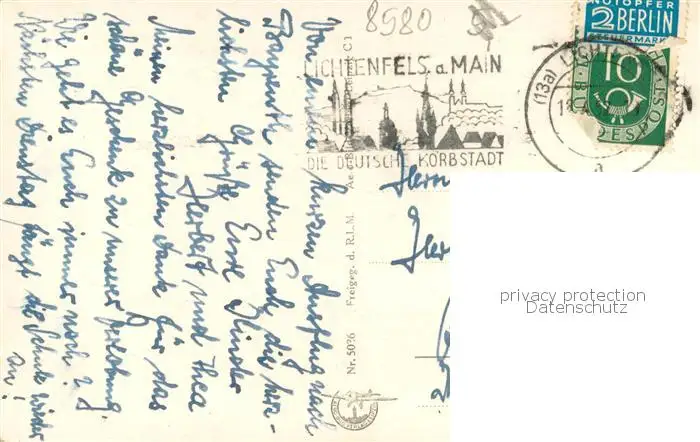 8980
NOTOPFER
2 BERLIN
STEUERMARKE
LICHTENFELS a MAIN
DIE DEUTSCHE KORBSTADT
(13a) LICHTE
10
BUNDESPOST
Von einem kurzen Ausflug nach
Bayreuth senden Euch die herz-
lichsten Grüße Eure Kinder
Herbert und Thea
Meinen herzlichsten Dank für das
schöne Geschenk zu unserer
Wie geht es Euch immer noch?
Nächsten Dienstag fängt die Schule wieder
an!
Nr. 5036 Freigeg. d. R.L.M.
Herrn
privacy protection
Datenschutz